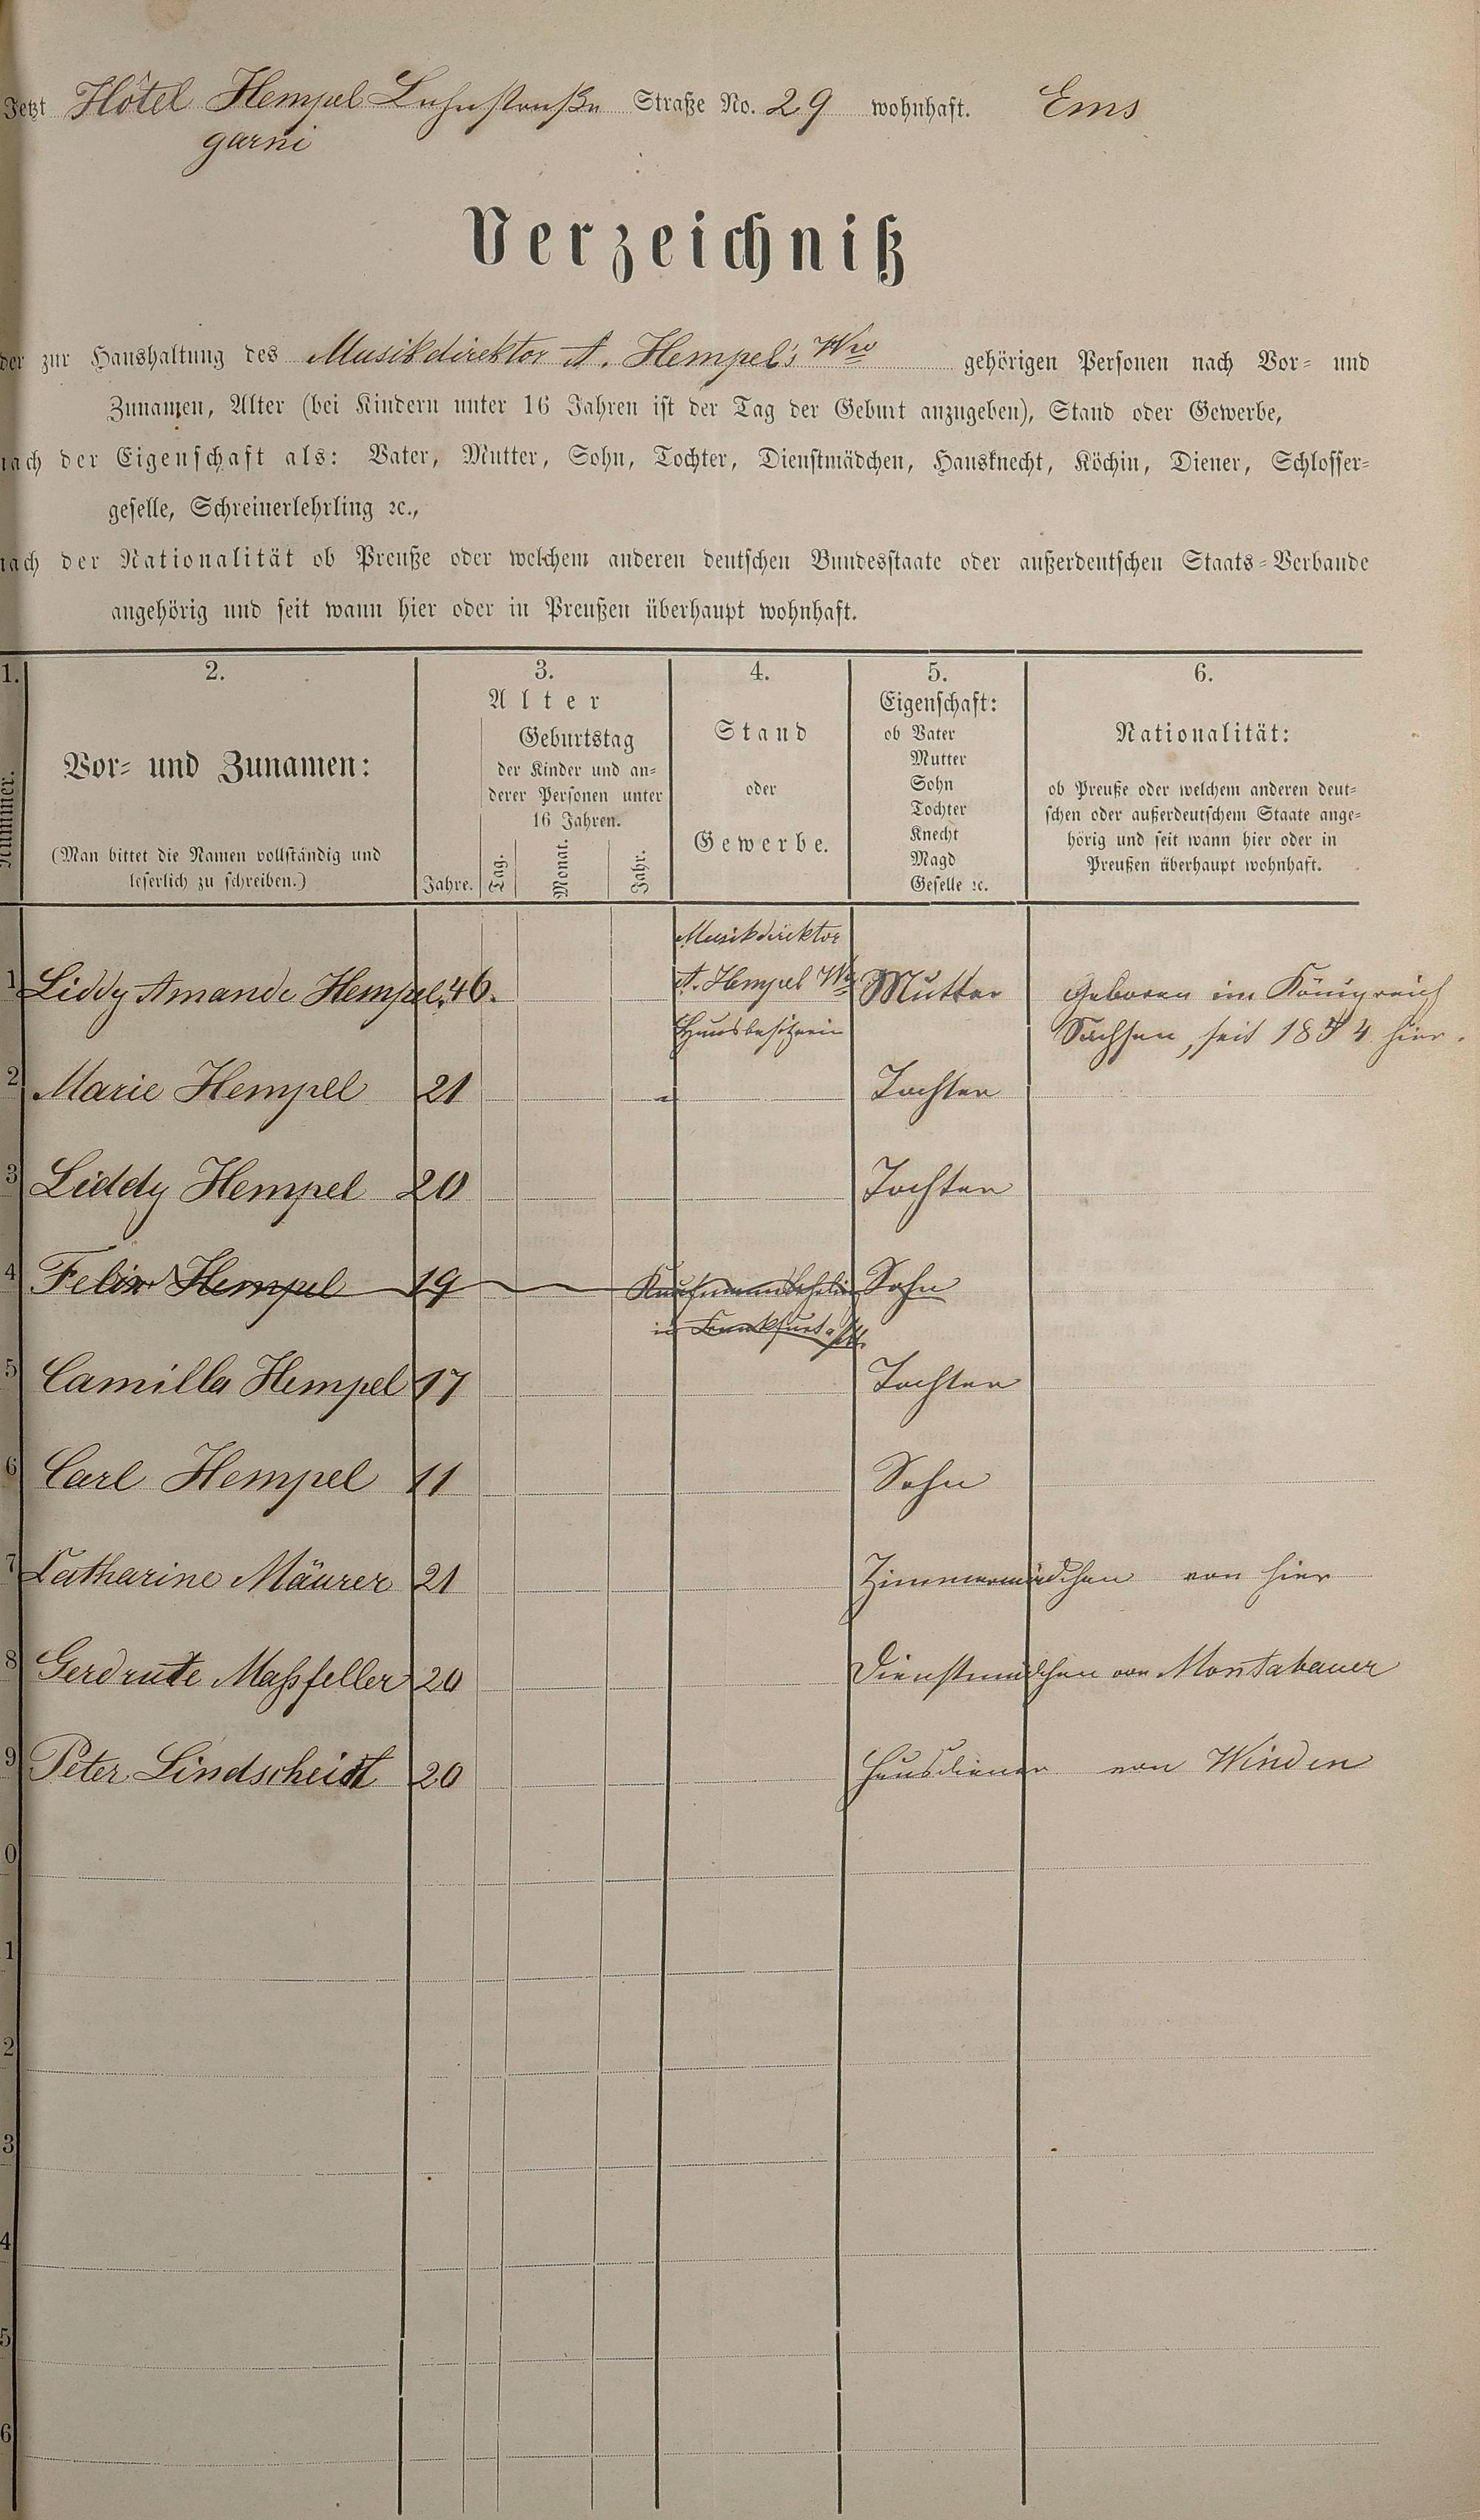 Jetzt Hôtel Hempel Lahnstraße Straße No. 29 wohnhaft. Ems
garni
Verzeichniß
der zur Haushaltung des Musikdirektor A. Hempel's Ww gehörigen Personen nach Vor- und
Zunamen, Alter (bei Kindern unter 16 Jahren ist der Tag der Geburt anzugeben), Stand oder Gewerbe,
nach der Eigenschaft als: Vater, Mutter, Sohn, Tochter, Dienstmädchen, Hausknecht, Köchin, Diener, Schlosser-
geselle, Schreinerlehrling ꝛc.,
nach der Nationalität ob Preuße oder welchem anderen deutschen Bundesstaate oder außerdeutschen Staats-Verbande
angehörig und seit wann hier oder in Preußen überhaupt wohnhaft.
1.
Nummer.
2.
Vor- und Zunamen:
(Man bittet die Namen vollständig und
leserlich zu schreiben.)
3.
Alter
Jahre.
Geburtstag
der Kinder und an-
derer Personen unter
16 Jahren.
Tag. Monat. Jahr.
4.
Stand
oder
Gewerbe.
5.
Eigenschaft:
ob Vater
Mutter
Sohn
Tochter
Knecht
Magd
Geselle ꝛc.
6.
Nationalität:
ob Preuße oder welchem anderen deut-
schen oder außerdeutschem Staate ange-
hörig und seit wann hier oder in
Preußen überhaupt wohnhaft.
Musikdirektor
1 Liddy Amande Hempel. 46. A. Hempel Ww Mutter Geboren im Königreich
Hausbesitzerin Sachsen, seit 1854 hier.
2 Marie Hempel 21 Tochter
3 Liddy Hempel 20 Tochter
4 Felix Hempel 19 Kaufmannslehrling Sohn
in Frankfurt a/M.
5 Camilla Hempel 17 Tochter
6 Carl Hempel 11 Sohn
7 Catharine Mäurer 21 Zimmermädchen von hier
8 Gerdrute Maßfeller 20 Dienstmädchen von Montabauer
9 Peter Lindscheidt 20 Hausdiener von Winden
0
1
2
3
4
5
6